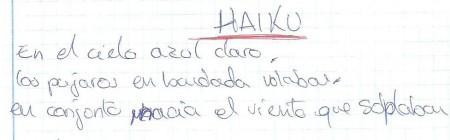 HAIKU
En el cielo azul claro,
los pajaros en bandada volaban,
en conjunto hacia el viento que soplaban